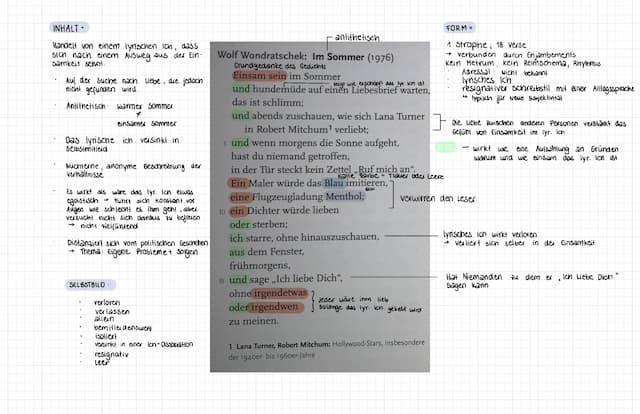 INHALT
Handelt von einem lyrischen Ich, dass
sich nach einem Ausweg aus der Ein-
samkeit sehnt.
· Auf der Suche nach Liebe, die jedoch
nicht gefunden wird.
· Antithetisch: warmer Sommer
≠
einsamer Sommer
· Das lyrische Ich versinkt in
Selbstmitleid
· Nüchterne, anonyme Beschreibung der
Verhältnisse
· Es wirkt als wäre das lyr. Ich etwas
egoistisch → führt sich konstant vor
Augen wie schlecht es ihm geht, aber
versucht nicht sich daraus zu befreien
→ nicht zielführend
· Distanziert sich vom politischen Geschehen
→ Thema: Eigene Probleme + Sorgen
SELBSTBILD
· verloren
· verlassen
· allein
· bemitleidenswert
· isoliert
· versinkt in einer Ich-Disposition
· resignativ
· leer
antithetisch
Wolf Wondratschek: Im Sommer (1976)
Grundgedanke des Gedichts
Einsam sein im Sommer
zeigt wie erschöpft das lyr. Ich ist
und hundemüde auf einen Liebesbrief warten,
das ist schlimm;
und abends zuschauen, wie sich Lana Turner
in Robert Mitchum¹ verliebt;
5 und wenn morgens die Sonne aufgeht,
hast du niemand getroffen,
in der Tür steckt kein Zettel „Ruf mich an“.
kalte Farbe = Trauer oder Leere
Ein Maler würde das Blau imitieren,
eine Flugzeugladung Menthol;
10 ein Dichter würde lieben
oder sterben;
ich starre, ohne hinauszuschauen,
aus dem Fenster,
frühmorgens,
15 und sage „Ich liebe Dich“,
ohne irgendetwas
oder irgendwen
zu meinen.
jeder wäre ihm lieb
solange das lyr. Ich geliebt wird
1 Lana Turner, Robert Mitchum: Hollywood-Stars, insbesondere
der 1940er- bis 1960er-Jahre
FORM
1 Strophe, 18 Verse
→ verbunden durch Enjambements
kein Metrum, kein Reimschema, Rhythmus
· Adressat: nicht bekannt
· lyrisches Ich
· resignativer Schreibstil mit einer Alltagssprache
↳ typisch für neue Subjektivität
Die Liebe zwischen anderen Personen verstärkt das
Gefühl von Einsamkeit im lyr. Ich
→ wirkt wie eine Aufzählung an Gründen
warum und wie einsam das lyr. Ich ist
verwirren den Leser
lyrisches Ich wirkt verloren
→ verliert sich selber in der Einsamkeit
Hat Niemanden zu dem er „Ich liebe Dich“
sagen kann